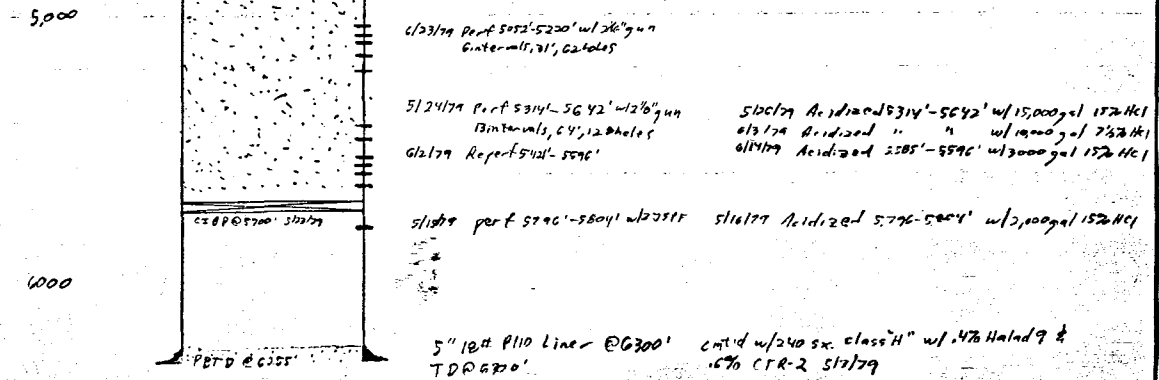 5,000
6/23/79 Perf 5052'-5220' w/ 2⅛" gun
6 intervals, 31', 62 holes
5/24/79 Perf 5314'-5642' w/ 2⅛" gun
13 intervals, 64', 128 holes
6/2/79 Reperf 5421'-5596'
5/26/79 Acidized 5314'-5642' w/ 15,000 gal 15% HCl
6/3/79 Acidized " " w/ 10,000 gal 7½% HCl
6/14/79 Acidized 5585'-5596' w/ 3000 gal 15% HCl
CIBP @ 5700'
5/15/79 perf 5796'-5804' w/ 2 JSPF
5/16/79 Acidized 5796-5804' w/ 2,000 gal 15% HCl
6000
PBTD @ 6255'
5" 18# P110 Liner @ 6300'
TD @ 6320'
cmt'd w/ 240 sx. class "H" w/ .4% Halad 9 &
.6% CFR-2 5/7/79